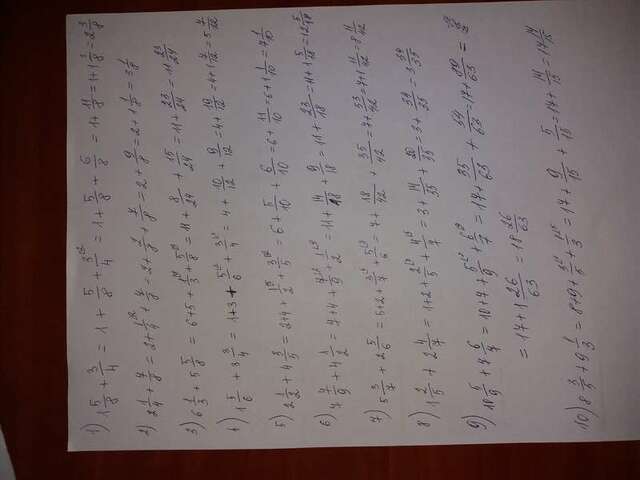 1) 1 5/8 + 3/4 = 1 + 5/8 + 3/4 = 1 + 5/8 + 6/8 = 1 + 11/8 = 1 + 1 3/8 = 2 3/8
2) 2 1/4 + 7/8 = 2 + 1/4 + 7/8 = 2 + 2/8 + 7/8 = 2 + 9/8 = 2 + 1 1/8 = 3 1/8
3) 6 1/3 + 5 5/8 = 6 + 5 + 1/3 + 5/8 = 11 + 8/24 + 15/24 = 11 + 23/24 = 11 23/24
4) 1 5/6 + 3 3/4 = 1 + 3 + 5/6 + 3/4 = 4 + 10/12 + 9/12 = 4 + 19/12 = 4 + 1 7/12 = 5 7/12
5) 2 1/2 + 4 3/5 = 2 + 4 + 1/2 + 3/5 = 6 + 5/10 + 6/10 = 6 + 11/10 = 6 + 1 1/10 = 7 1/10
6) 7 7/9 + 4 1/2 = 7 + 4 + 7/9 + 1/2 = 11 + 14/18 + 9/18 = 11 + 23/18 = 11 + 1 5/18 = 12 5/18
7) 5 3/7 + 2 5/6 = 5 + 2 + 3/7 + 5/6 = 7 + 18/42 + 35/42 = 7 + 53/42 = 7 + 1 11/42 = 8 11/42
8) 1 2/5 + 2 4/7 = 1 + 2 + 2/5 + 4/7 = 3 + 14/35 + 20/35 = 3 + 34/35 = 3 34/35
9) 10 5/9 + 7 6/7 = 10 + 7 + 5/9 + 6/7 = 17 + 35/63 + 54/63 = 17 + 89/63 =
= 17 + 1 26/63 = 18 26/63
10) 8 3/5 + 9 1/3 = 8 + 9 + 3/5 + 1/3 = 17 + 9/15 + 5/15 = 17 + 14/15 = 17 14/15